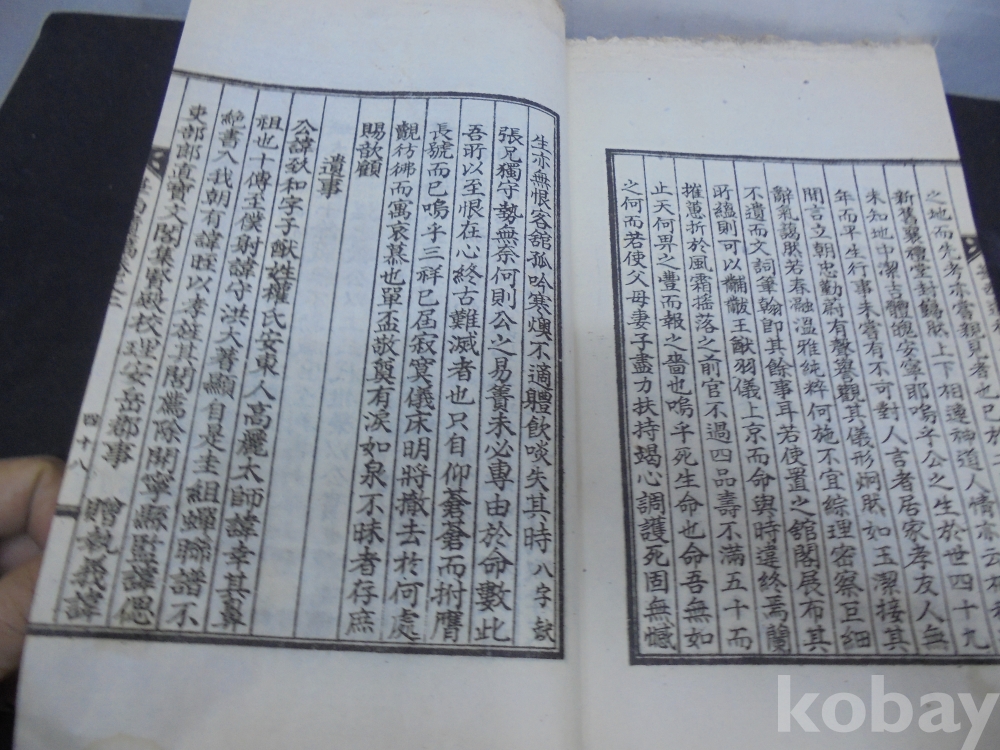 之地而先考亦嘗親見者也
新舊襄禮堂封鶴然上下相連神道人情亦云
未知地中潔吉體魄安寧耶嗚乎公之生於世四十九
年而平生行事未嘗有不可對人言者居家孝友人無
間言立朝忠勤蔚有聲譽觀其儀形炯然如玉潔接其
辭氣藹然若春融溫雅純粹何施不宜綜理密察巨細
不遺而文詞筆翰卽其餘事耳若使置之舘閣展布其
所蘊則可以黼黻王猷羽儀上京而命與時違終焉蘭
摧蕙折於風霜摇落之前官不過四品壽不滿五十而
止天何畀之豐而報之嗇也嗚乎死生命也命吾無如
之何而若使父母妻子盡力扶持竭心調護死固無憾
生亦無恨客舘孤吟寒燠不適體飮啖失其時八字缺
張兄獨守勢無奈何則公之易簀未必專由於命數此
吾所以至恨在心終古難滅者也只自仰蒼蒼而拊膺
長號而已嗚乎三祥已屆寂寞儀床明將撤去於何處
覩彷彿而寓哀慕也單盃敬奠有淚如泉不昧者存庶
賜歆顧
遺事
公諱致和字子猷姓權氏安東人高麗太師諱幸其鼻
祖也十傳至僕射諱守洪大著顯自是圭組蟬聯譜不
絶書入我朝有諱旺以孝旌其閭薦除開寧縣監諱偲
吏部郎直寶文閣集賢殿校理安岳郡事 贈執義諱
四十八
kobay